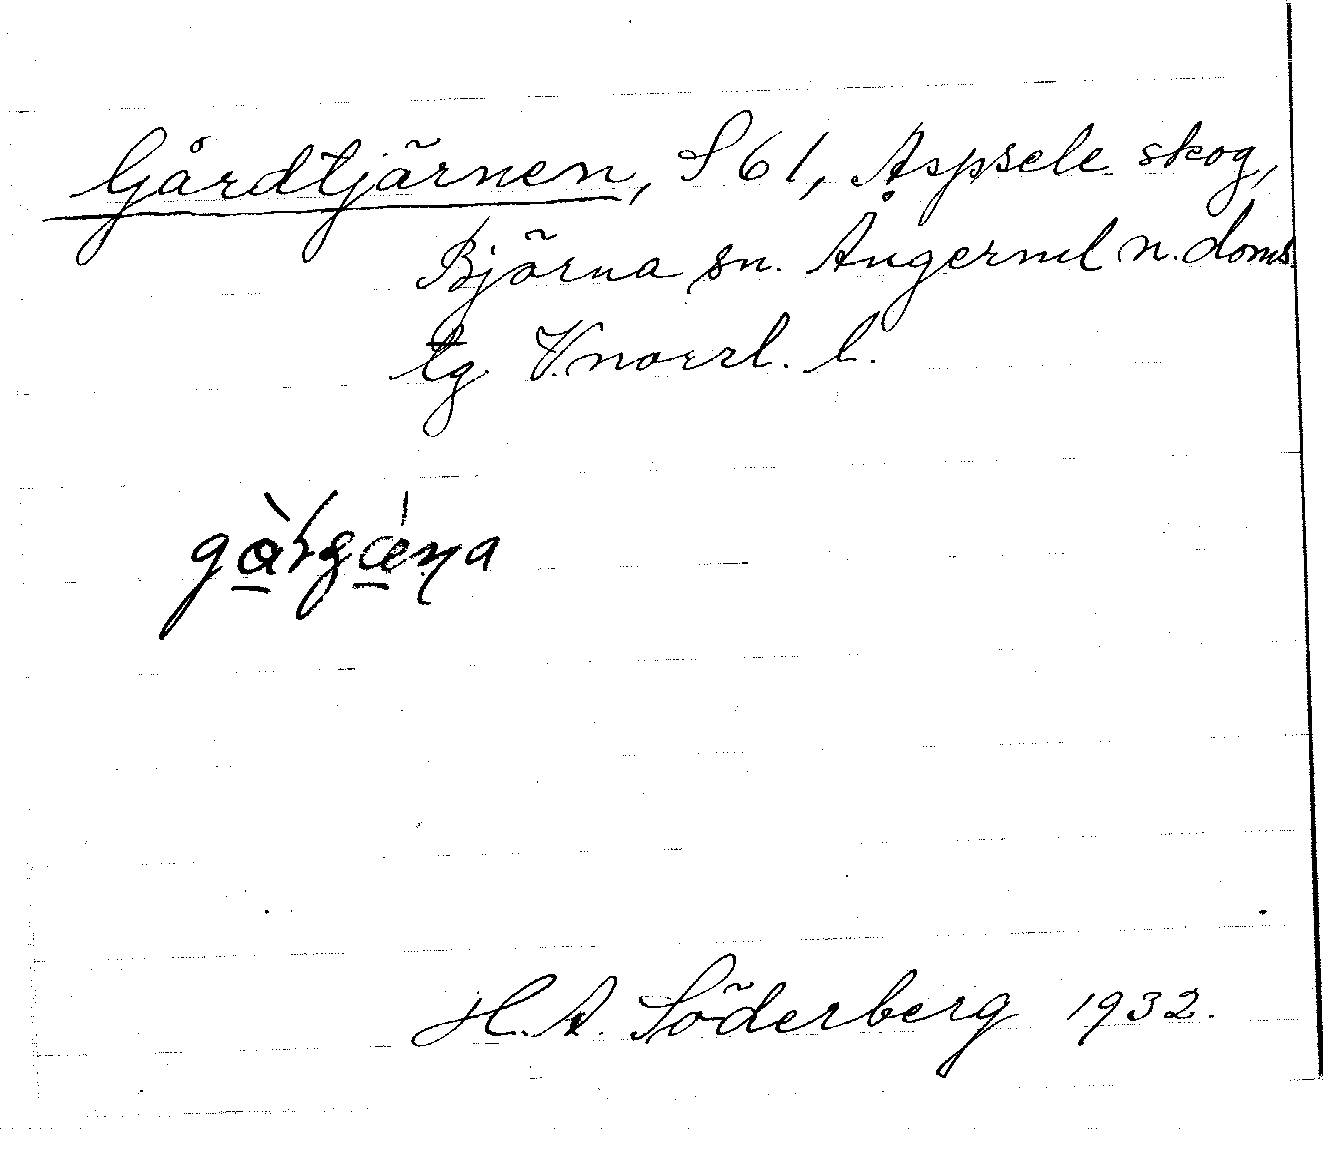 Gårdtjärnen, S 61, Aspsele skog,
Björna sn. Ångerml n. doms.
tg V.norrl. l.
H. A. Söderberg 1932.